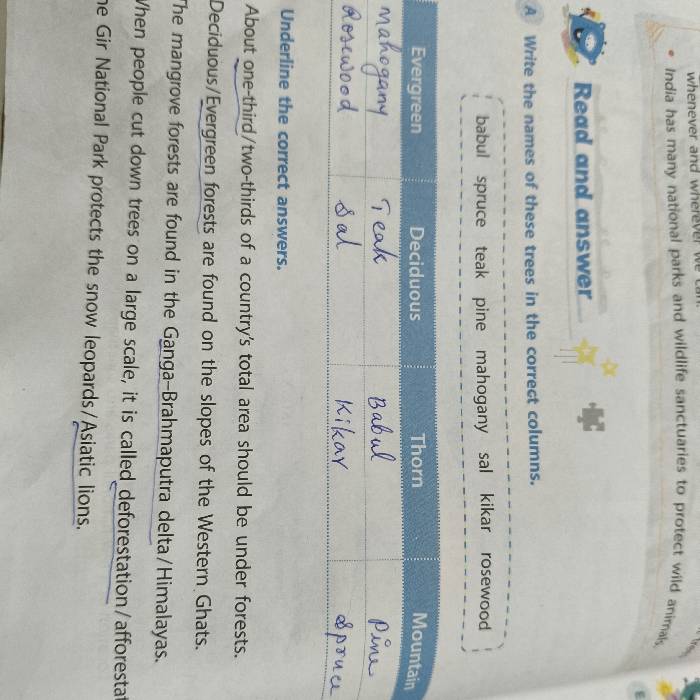 whenever and wherever we can
• India has many national parks and wildlife sanctuaries to protect wild animals
Read and answer
A Write the names of these trees in the correct columns.
babul spruce teak pine mahogany sal kikar rosewood
Evergreen Deciduous Thorn Mountain
Mahogany Teak Babul Pine
Rosewood Sal Kikar Spruce
Underline the correct answers.
About one-third/two-thirds of a country's total area should be under forests.
Deciduous/Evergreen forests are found on the slopes of the Western Ghats.
The mangrove forests are found in the Ganga–Brahmaputra delta/Himalayas.
When people cut down trees on a large scale, it is called deforestation/afforestat
he Gir National Park protects the snow leopards/Asiatic lions.